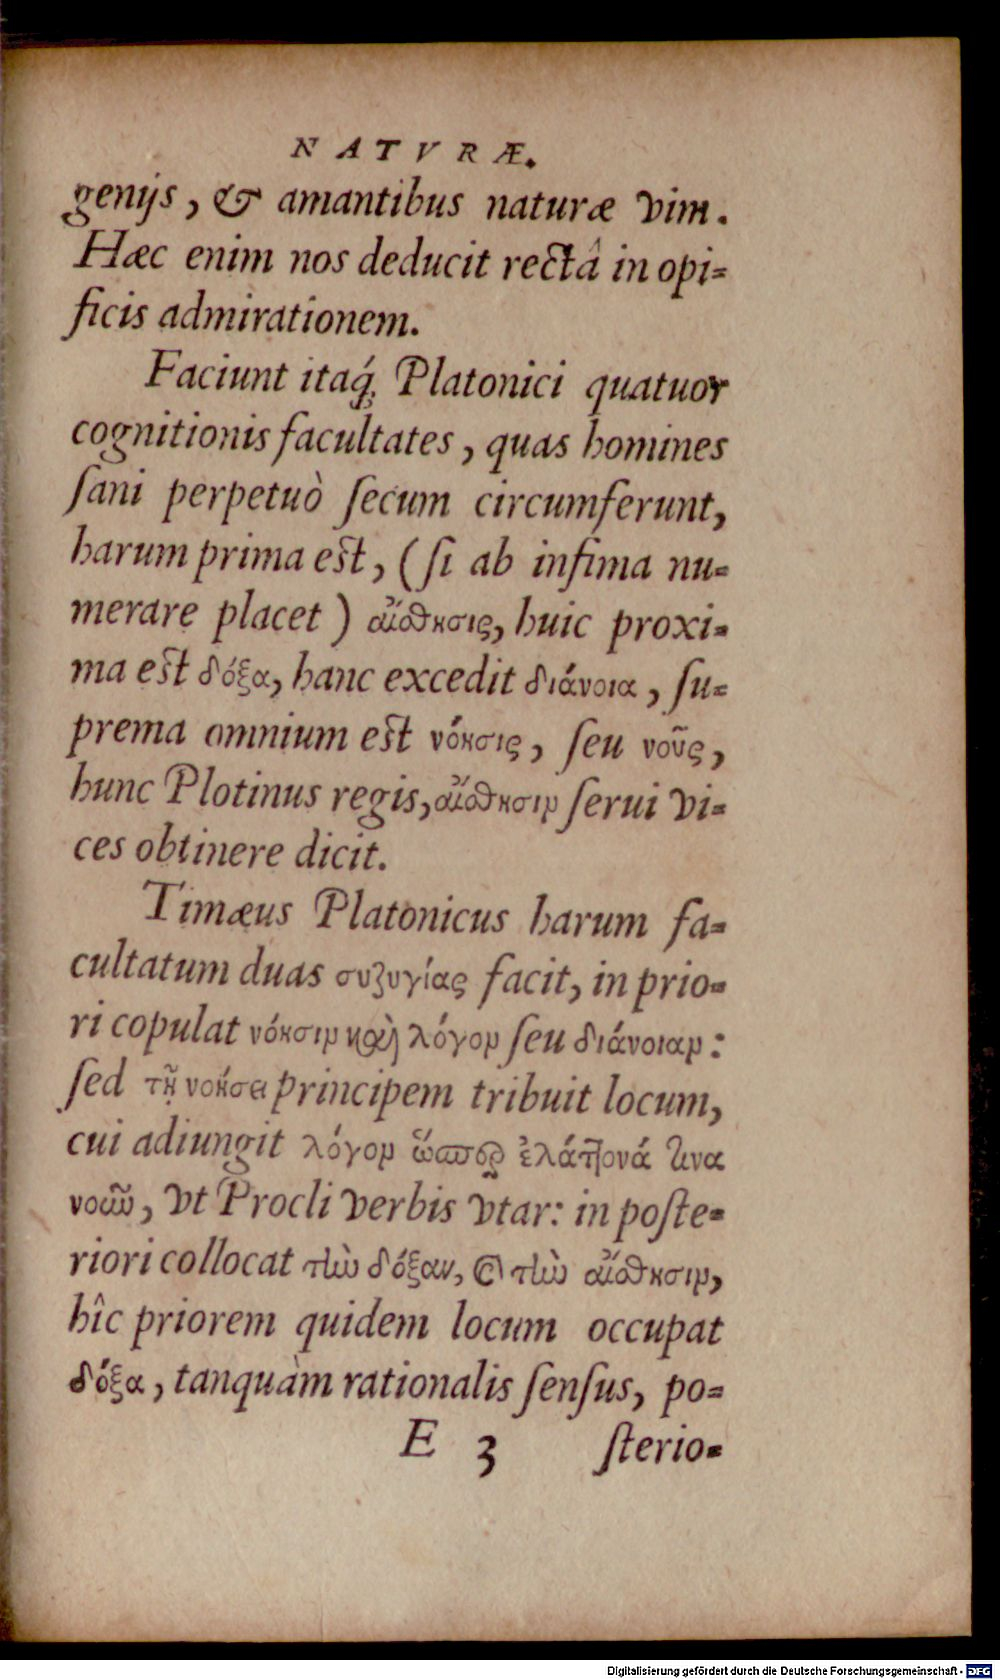 NATVRÆ.
genijs, & amantibus naturæ vim.
Hæc enim nos deducit rectâ in opi-
ficis admirationem.
Faciunt itaq́; Platonici quatuor
cognitionis facultates, quas homines
sani perpetuò secum circumferunt,
harum prima est, (si ab infima nu-
merare placet) αἴσθησις, huic proxi-
ma est δόξα, hanc excedit διάνοια, su-
prema omnium est νόησις, seu νοῦς,
hunc Plotinus regis, αἴσθησιν serui vi-
ces obtinere dicit.
Timæus Platonicus harum fa-
cultatum duas συζυγίας facit, in prio-
ri copulat νόησιν καὶ λόγον seu διάνοιαν:
sed τῇ νοήσει principem tribuit locum,
cui adiungit λόγον ὥσπερ ἐλάττονά τινα
νοῶν, vt Procli verbis vtar: in poste-
riori collocat τὴν δόξαν, & τὴν αἴσθησιν,
hîc priorem quidem locum occupat
δόξα, tanquàm rationalis sensus, po-
E 3 sterio-
Digitalisierung gefördert durch die Deutsche Forschungsgemeinschaft - DFG